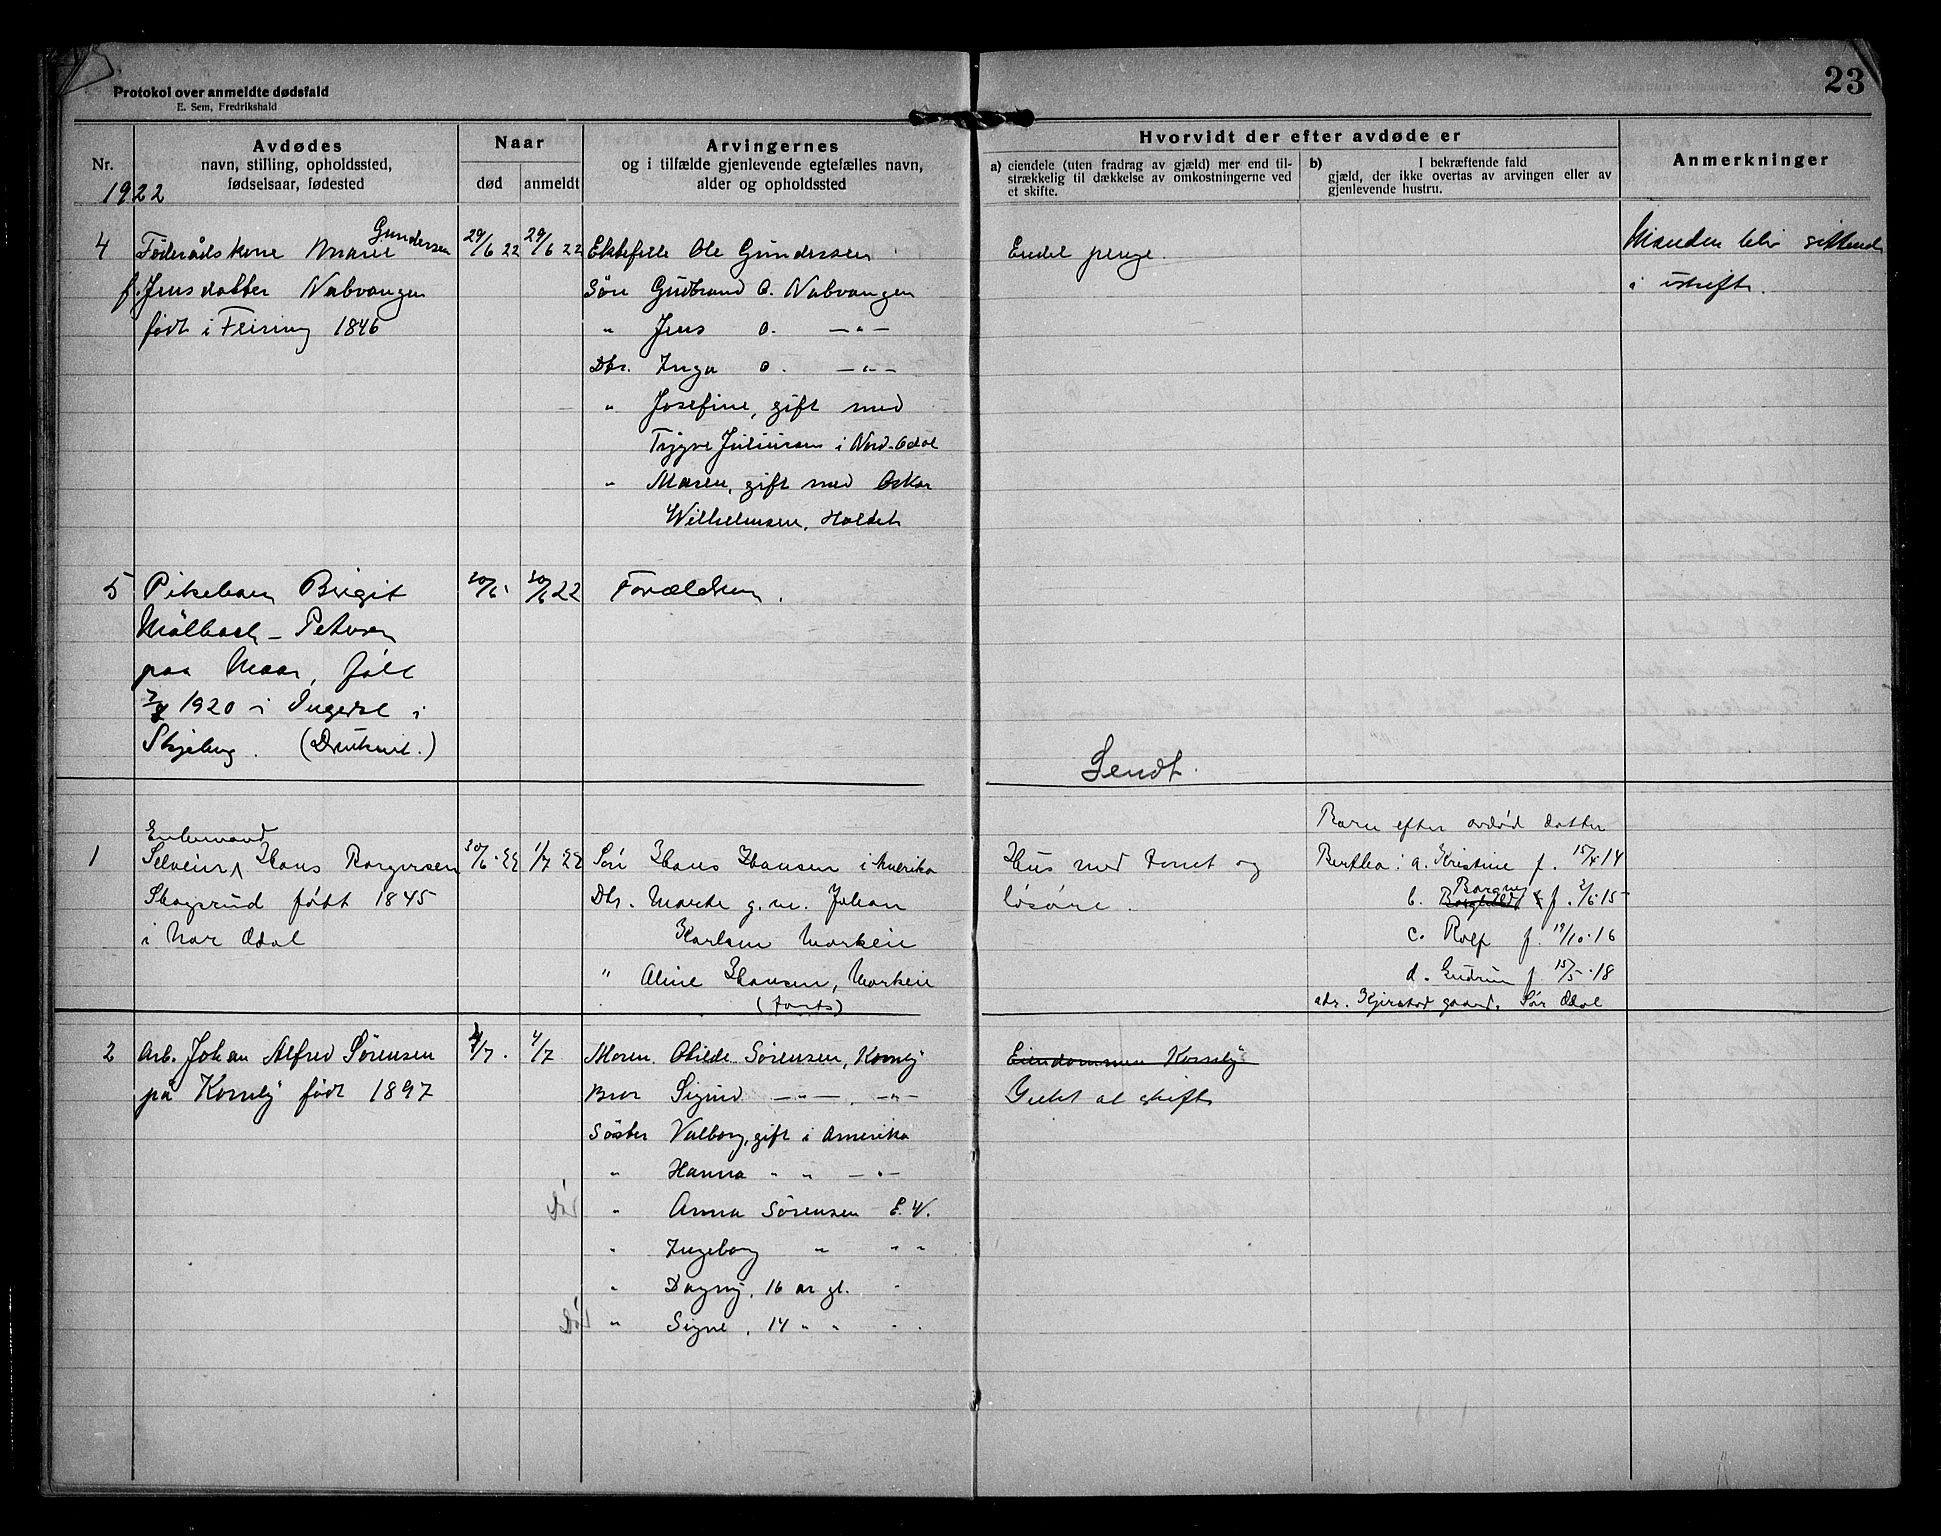 Protokol over anmeldte dødsfald
E. Sem, Fredrikshald
23
Nr.
Avdødes
navn, stilling, opholdssted,
fødselsaar, fødested
Naar
død
anmeldt
Arvingernes
og i tilfælde gjenlevende egtefælles navn,
alder og opholdssted
Hvorvidt der efter avdøde er
a) eiendele (uten fradrag av gjæld) mer end til-
strækkelig til dækkelse av omkostningerne ved
et skifte.
b) I bekræftende fald
gjæld, der ikke overtas av arvingen eller av
gjenlevende hustru.
Anmerkninger
1922
4 Føderådskone Marie Gundersen
f. Jensdatter Nabvangen
født i Feiring 1846
29/6 22 29/6 22
Ektefelle Ole Gundersen
Søn Gudbrand O. Nabvangen
" Jens O. —"—
Dtr. Inga O. —"—
" Josefine, gift med
Trygve Juliussen i Nord-Odal
" Maren, gift med Oskar
Wilhelmsen, Holtet
Endel penge.
Manden blir sittende
i uskifte.
5 Pikebarn Birgit
Mölbach-Petersen
paa Maar, født
1920 i Ingedal i
Skjeberg. (Druknet.)
30/6 30/6 22
Forældrene.
Sendt.
1 Enkemand
Selveier Hans Borgersen
Skogsrud født 1845
i Nor Odal
30/6. 22 1/7 22
Søn Hans Hansen i Amerika
Dtr. Marte g.m. Johan
Karlsen Morkeie
" Aline Hansen, Morkeie
(forts)
Hus med tomt og
løsøre.
Barn efter avdød datter
Bertha: a. Kristine f. 15/4 14
b. Borghild Borgny f. 2/6-15
c. Rolf f. 19/10-16
d. Gudrun f. 15/5-18
adr. Kjerstad gaard, Sør Odal
2 Arb. Johan Alfred Sørensen
på Kornly født 1897
4/7. 4/7
Moren Otilde Sørensen, Kornly
Bror Sigurd —"— —"—
Søster Valborg, gift i Amerika
" Hanna " " —"—
død " Anna Sørensen E.V.
" Ingeborg " " "
" Dagny, 16 år gl. "
død " Signe, 14 " " "
Eiendommen Kornly
Gikk at skifte